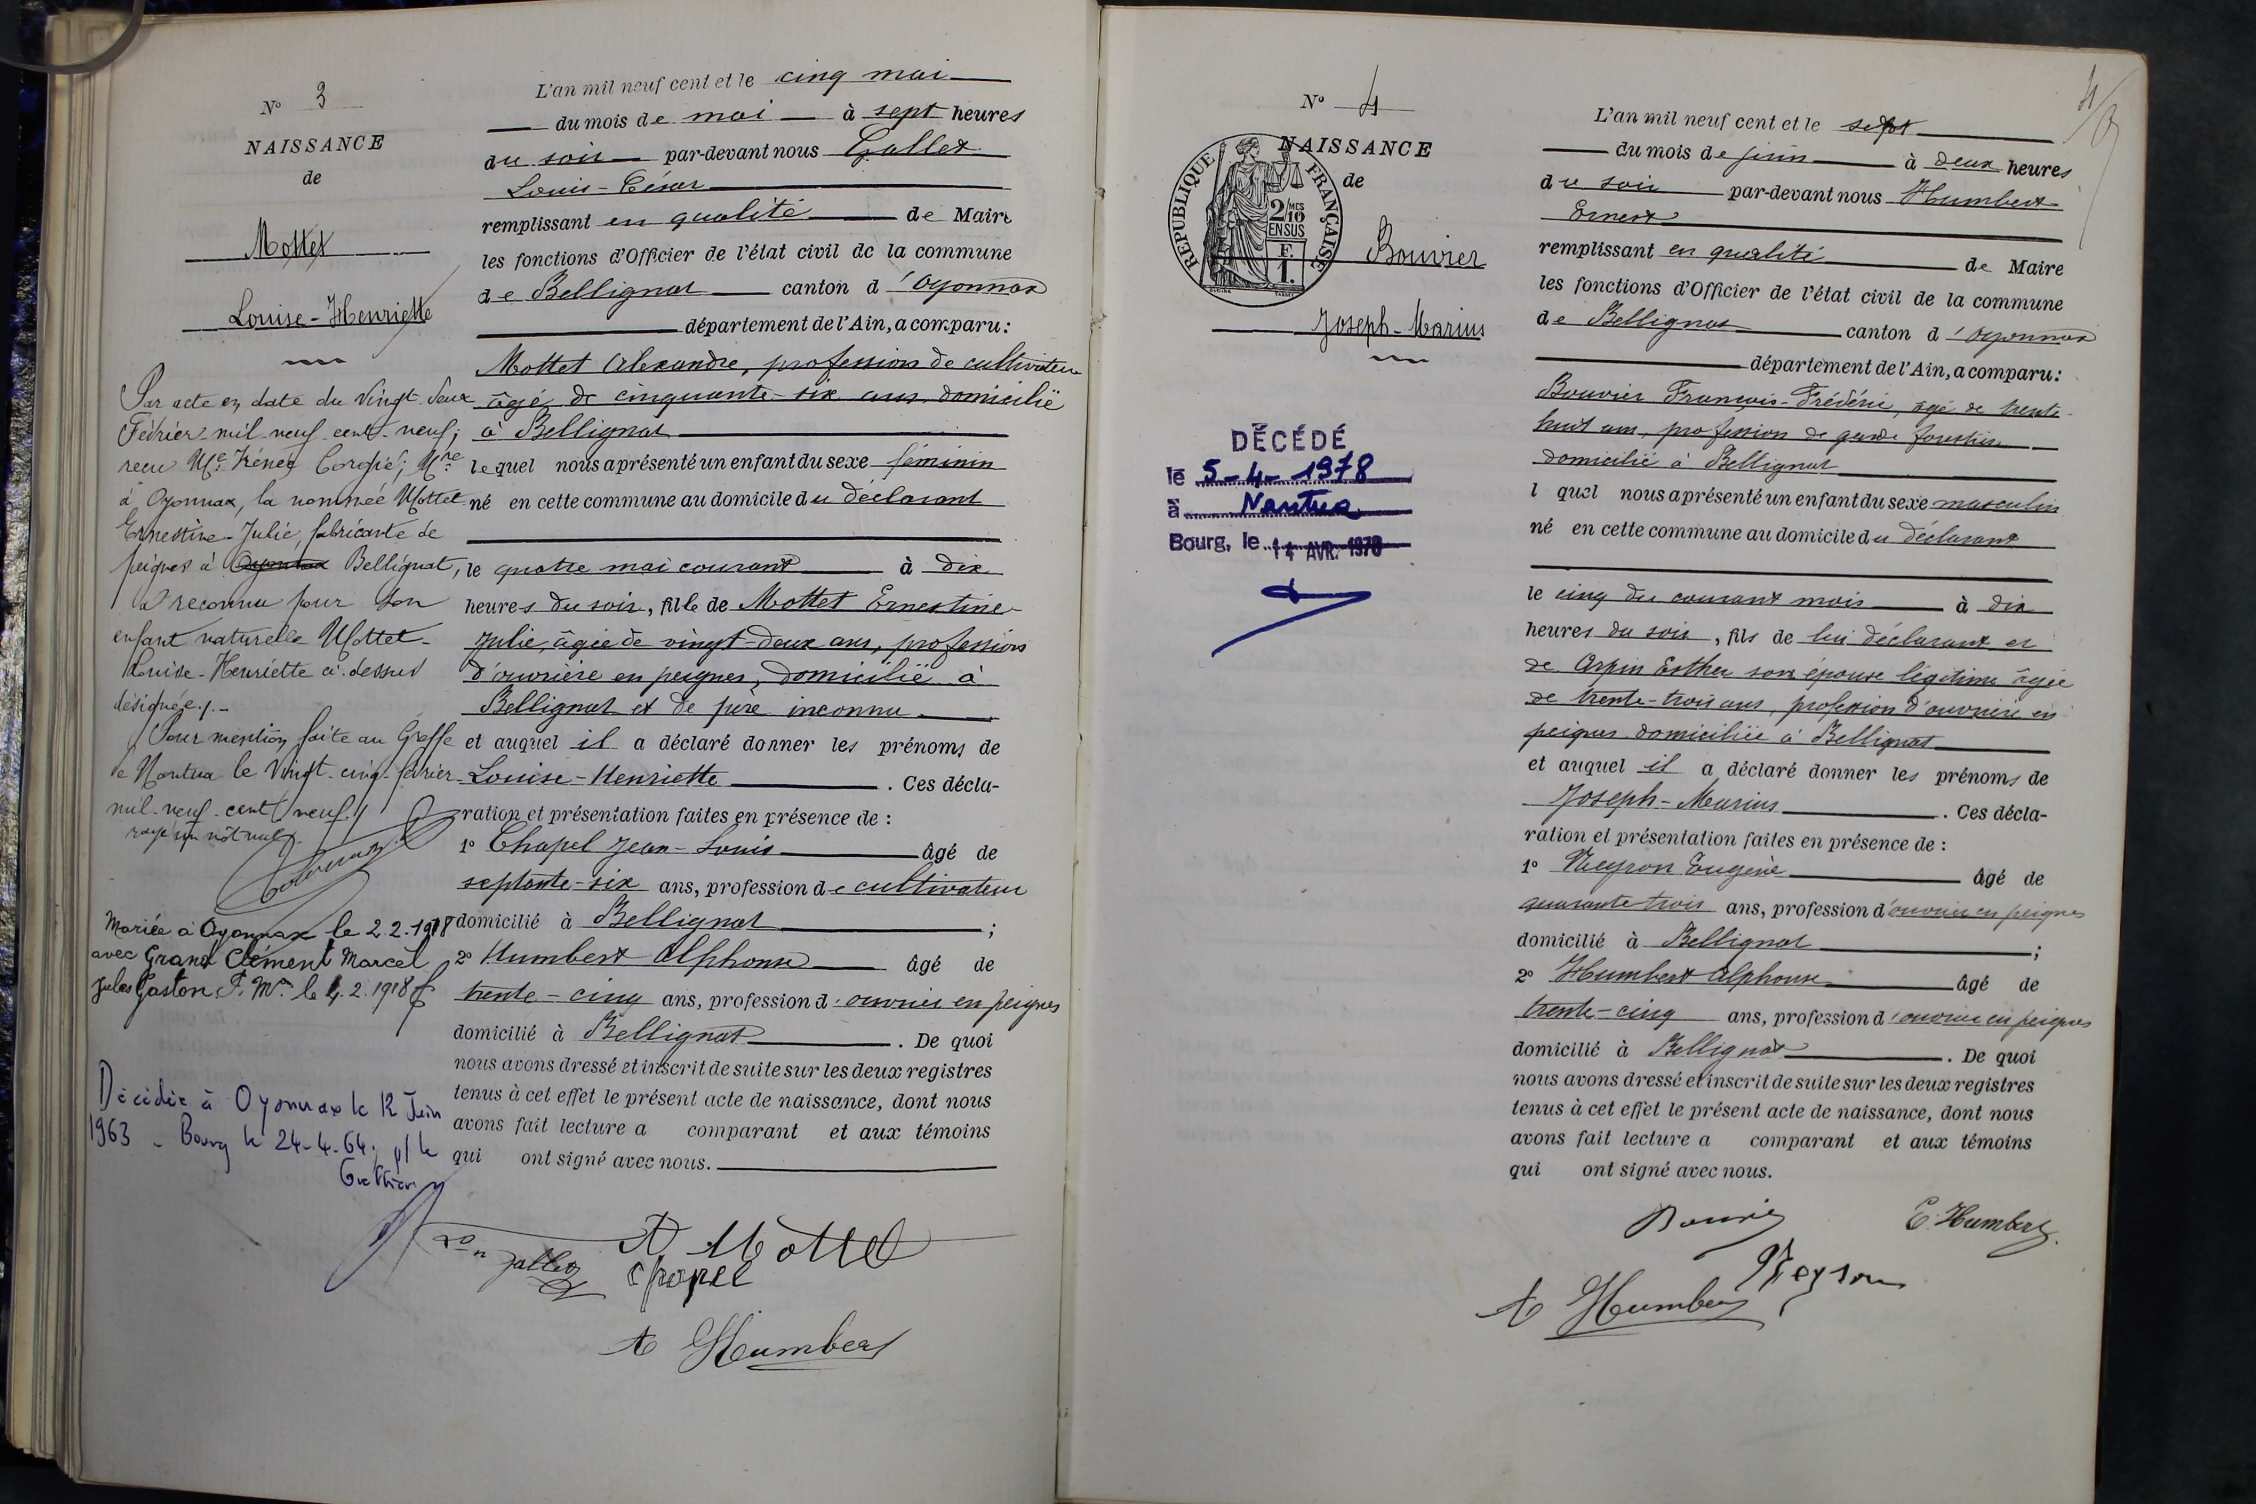 N° 3
NAISSANCE
de
Mottet
Louise-Henriette
Par acte en date du vingt-deux
Février mil neuf cent neuf,
reçu Me Irénée, Nre
à Oyonnax, la nommée Mottet
Ernestine-Julie, fabricante de
peignes à Oyonnax Bellignat,
a reconnu pour son
enfant naturelle Mottet
Louise-Henriette ci-dessus
désignée./.
Pour mention faite au Greffe
de Nantua le vingt-cinq février
mil neuf cent neuf./
rayé un mot nul.
Mariée à Oyonnax le 2.2.1918
avec Grand Clément Marcel
Jules Gaston P. Mon le 4.2.1918
Décédée à Oyonnax le 12 Juin
1963 - Bourg le 24-4-64. p/ le
Greffier
L'an mil neuf cent et le cinq mai
du mois de mai à sept heures
du soir par-devant nous Gallet
Louis-César
remplissant en qualité de Maire
les fonctions d'Officier de l'état civil de la commune
de Bellignat canton d'Oyonnax
département de l'Ain, a comparu:
Mottet Alexandre, profession de cultivateur
âgé de cinquante-six ans domicilié
à Bellignat
lequel nous a présenté un enfant du sexe féminin
né en cette commune au domicile du déclarant
le quatre mai courant à dix
heures du soir, fille de Mottet Ernestine
Julie, âgée de vingt-deux ans, profession
d'ouvrière en peignes, domicilié à
Bellignat et de père inconnu
et auquel il a déclaré donner les prénoms de
Louise-Henriette. Ces décla-
ration et présentation faites en présence de :
1° Chapel Jean-Louis âgé de
septante-six ans, profession de cultivateur
domicilié à Bellignat ;
2° Humbert Alphonse âgé de
trente-cinq ans, profession d'ouvrier en peignes
domicilié à Bellignat. De quoi
nous avons dressé et inscrit de suite sur les deux registres
tenus à cet effet le présent acte de naissance, dont nous
avons fait lecture a comparant et aux témoins
qui ont signé avec nous.
A Mottet
Gallet
Chapel
A Humbert
4
N° 4
NAISSANCE
de
RÉPUBLIQUE FRANÇAISE
2/10 MES
EN SUS
F.
1.
Bouvier
Joseph-Marius
DÉCÉDÉ
le 5-4-1978
à Nantua
Bourg, le 14 AVR. 1978
L'an mil neuf cent et le sept
du mois de juin à deux heures
du soir par-devant nous Humbert
Ernest
remplissant en qualité de Maire
les fonctions d'Officier de l'état civil de la commune
de Bellignat canton d'Oyonnax
département de l'Ain, a comparu:
Bouvier François-Frédéric, âgé de trente-
huit ans, profession de garde forestier
domicilié à Bellignat
l quel nous a présenté un enfant du sexe masculin
né en cette commune au domicile du déclarant
le cinq du courant mois à dix
heures du soir, fils de lui déclarant et
de Arpin Esther son épouse légitime âgée
de trente-trois ans, profession d'ouvrière en
peignes domiciliée à Bellignat
et auquel il a déclaré donner les prénoms de
Joseph-Marius. Ces décla-
ration et présentation faites en présence de :
1° Neyron Eugène âgé de
quarante-trois ans, profession d'ouvrier en peignes
domicilié à Bellignat ;
2° Humbert Alphonse âgé de
trente-cinq ans, profession d'ouvrier en peignes
domicilié à Bellignat. De quoi
nous avons dressé et inscrit de suite sur les deux registres
tenus à cet effet le présent acte de naissance, dont nous
avons fait lecture a comparant et aux témoins
qui ont signé avec nous.
Bouvier
E. Humbert
Neyron
A Humbert